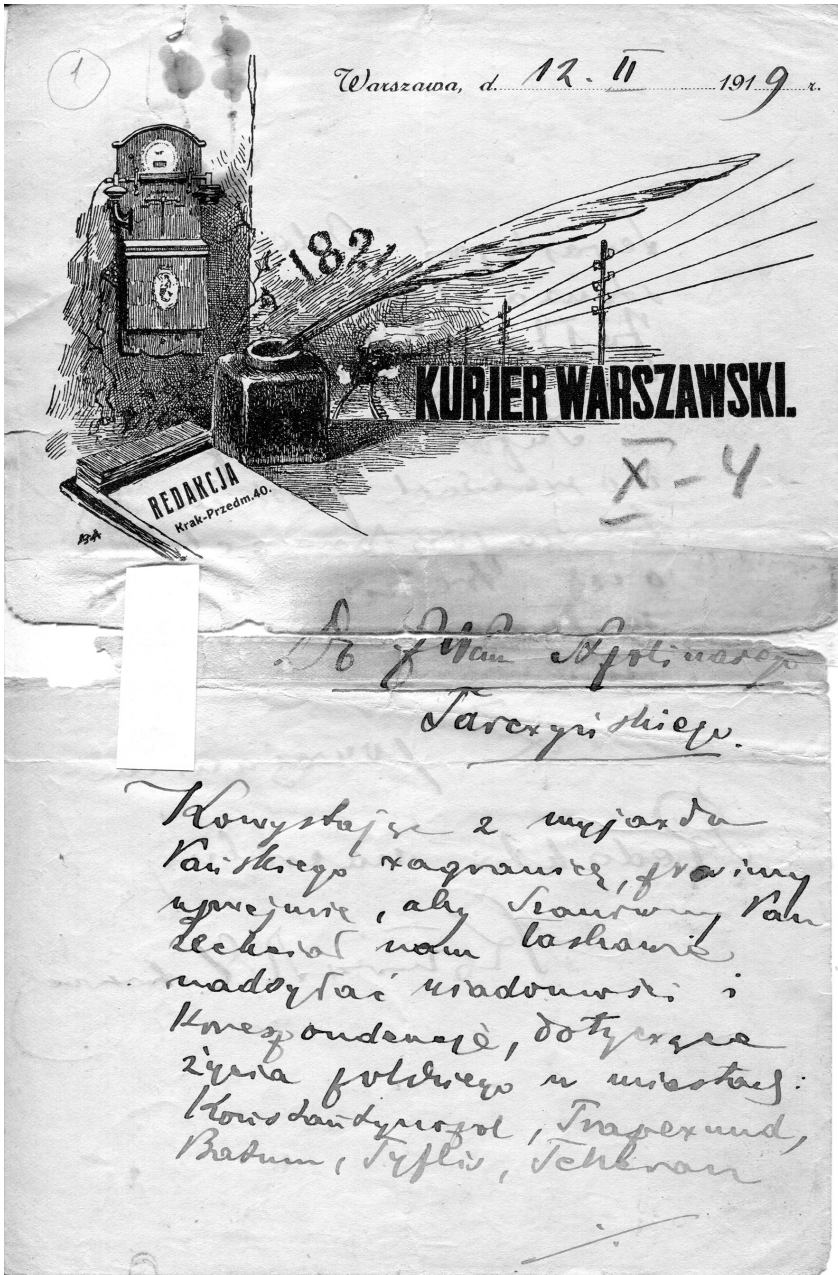 1
Warszawa, d. 12. II 1919 r.
1821
KURJER WARSZAWSKI.
REDAKCJA
Krak-Przedm. 40.
X-4
Pan Apolinarego
Tarczyńskiego.
Korzystając z wyjazdu
Pańskiego zagranicę, prosimy
uprzejmie, aby Szanowny Pan
zechciał nam łaskawie
nadsyłać wiadomości i
Korespondencje, dotyczące
życia polskiego w miastach:
Konstantynopol, Trapezund,
Batum, Tyflis, Teheran